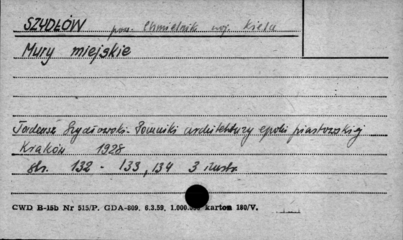 SZYDŁÓW pow. Chmielnik woj. Kielce
Mury miejskie
Tadeusz Szydłowski. Pomniki architektury epoki piastowskiej
Kraków 1928
str. 132 - 133, 134 3 ilustr.
CWD B-15b Nr 515/P. GDA-809. 6.3.59, 1.000.000 kartek 180/V.